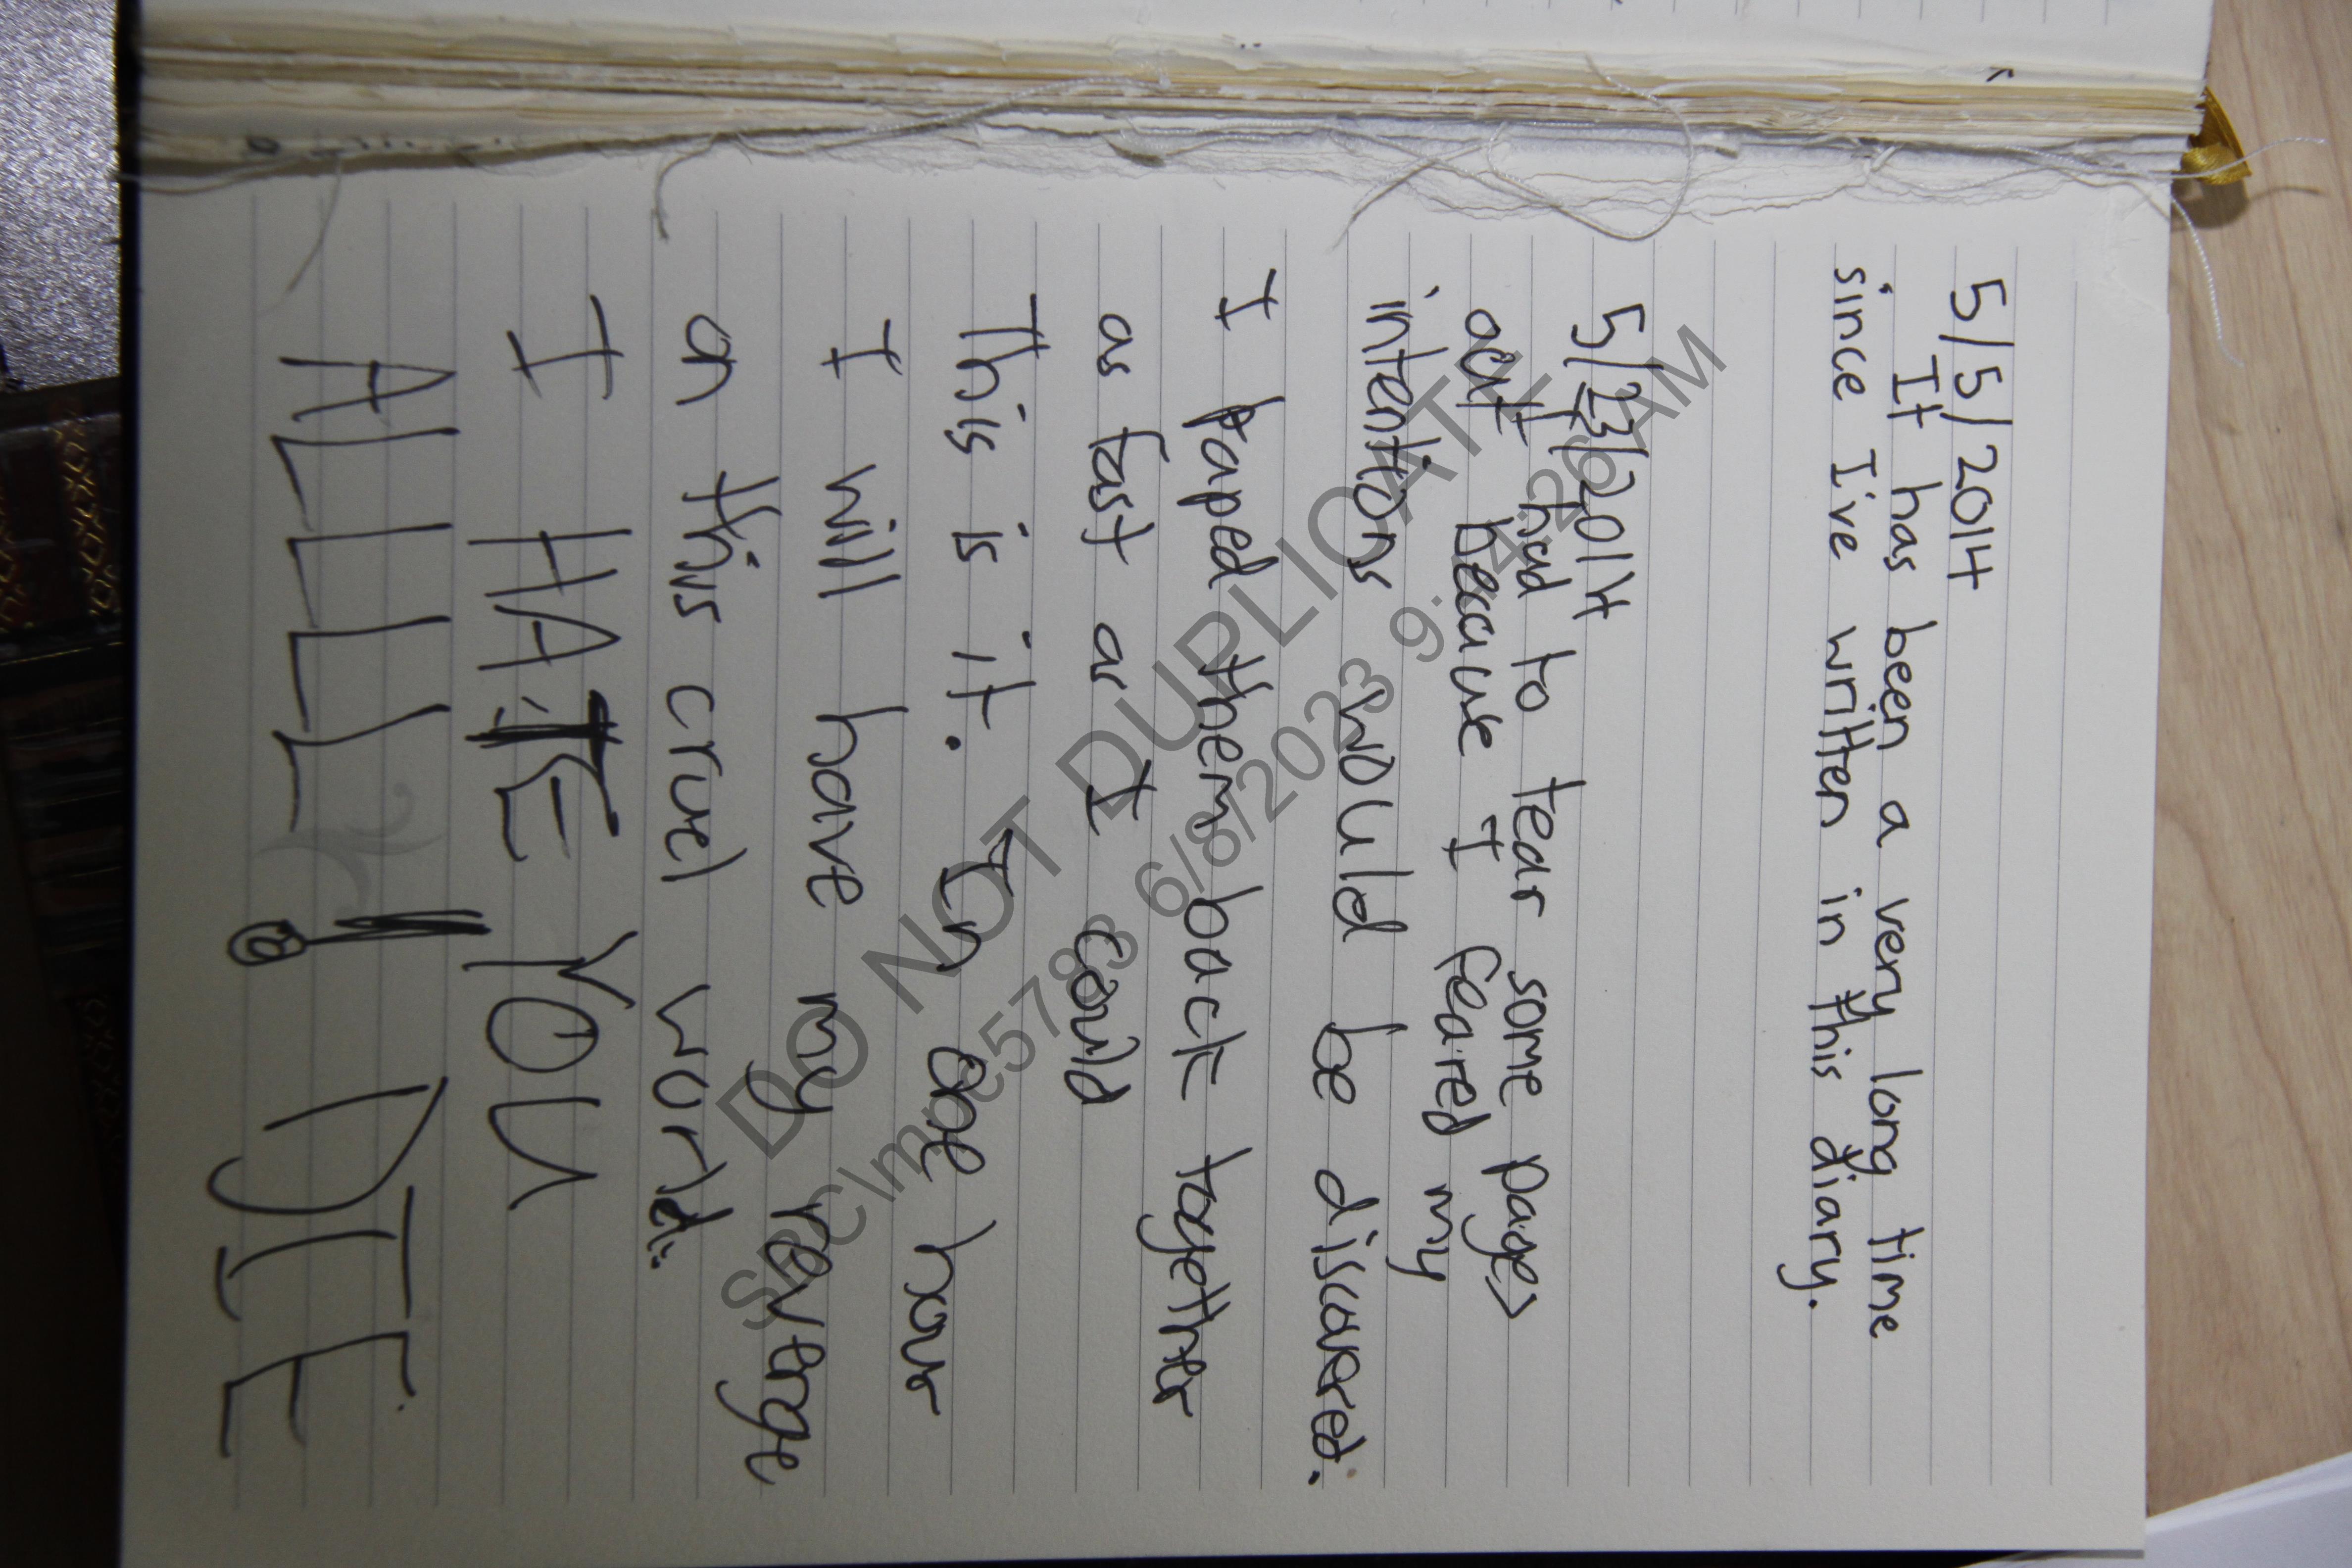 5/5/2014
It has been a very long time
since I've written in this diary.
5/23/2014
I had to tear some pages
out because I feared my
intentions would be discovered.
I taped them back together
as fast as I could
This is it. In one hour
I will have my revenge
on this cruel world.
I HATE YOU
ALLLL! DIE
DO NOT DUPLICATE
SBC\mpc5783 6/8/2023 9:44:26 AM